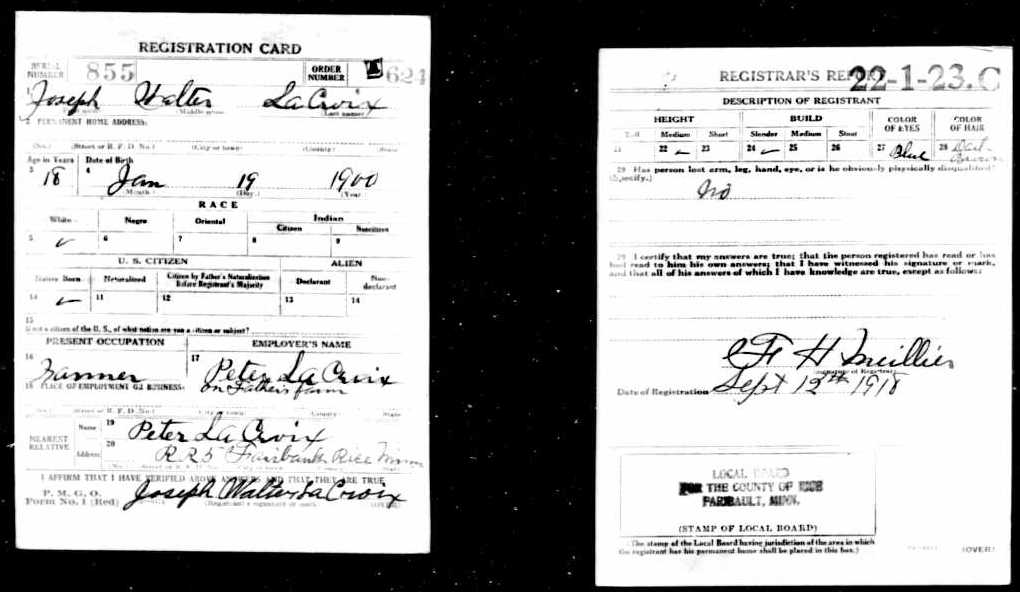 REGISTRATION CARD
SERIAL NUMBER 855 ORDER NUMBER 624
Joseph Walter LaCroix
(Last name)
2 PERMANENT HOME ADDRESS:
(No.) (Street or R. F. D. No.) (City or town) (County) (State)
Age in Years Date of Birth
3 18 4 Jan 19 1900
(Month.) (Day.) (Year.
RACE
White Negro Oriental Indian
Citizen Noncitizen
5 ✓ 6 7 8 9
U. S. CITIZEN ALIEN
Native Born Naturalized Citizen by Father's Naturalization Before Registrant's Majority Declarant Non-declarant
10 ✓ 11 12 13 14
15
If not a citizen of the U. S., of what nation are you a citizen or subject?
PRESENT OCCUPATION EMPLOYER'S NAME
16 Farmer 17 Peter LaCroix
18 PLACE OF EMPLOYMENT OR BUSINESS: on Fathers farm
(No.) (Street or R. F. D. No.) (City or town) (County) (State)
NEAREST RELATIVE Name 19 Peter LaCroix
Address 20 RR5 Rice Minn
I AFFIRM THAT I HAVE VERIFIED ABOVE ANSWERS AND THAT THEY ARE TRUE
P. M. G. O.
Form No. 1 (Red) Joseph Walter LaCroix
(Registrant's signature or mark) (OVER)
REGISTRAR'S REPORT 22-1-23.C
DESCRIPTION OF REGISTRANT
HEIGHT BUILD COLOR OF EYES COLOR OF HAIR
Tall Medium Short Slender Medium Stout
21 22 ✓ 23 24 ✓ 25 26 27 Blue 28 Dark Brown
29 Has person lost arm, leg, hand, eye, or is he obviously physically disqualified?
(Specify.)
No
I certify that my answers are true; that the person registered has read or has
had read to him his own answers; that I have witnessed his signature or mark,
and that all of his answers of which I have knowledge are true, except as follows:
(Signature of Registrar)
Date of Registration Sept 12th 1918
LOCAL BOARD
FOR THE COUNTY OF RICE
FARIBAULT, MINN.
(STAMP OF LOCAL BOARD)
(The stamp of the Local Board having jurisdiction of the area in which
the registrant has his permanent home shall be placed in this box.)
(OVER)